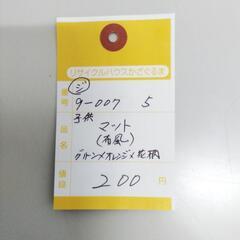 リサイクルハウスかざぐるま
ジ
番号 9-007 5
子供
品名 マント
(布風)
グリーン×オレンジ×花柄
値段 200円